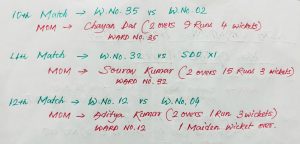 10th Match → W.No. 35 vs W.No. 02
MOM → Chayan Das (2 overs 9 Runs 4 wickets)
WARD No. 35
11th Match → W.No. 32 vs SDO XI
MOM → Sourav Kumar (2 overs 15 Runs 3 wickets)
WARD No. 32
12th Match → W.No. 12 vs W.No. 04
MOM → Aditya Kumar (2 overs 1 Run 3 wickets)
WARD No. 12 1 Maiden Wicket over.